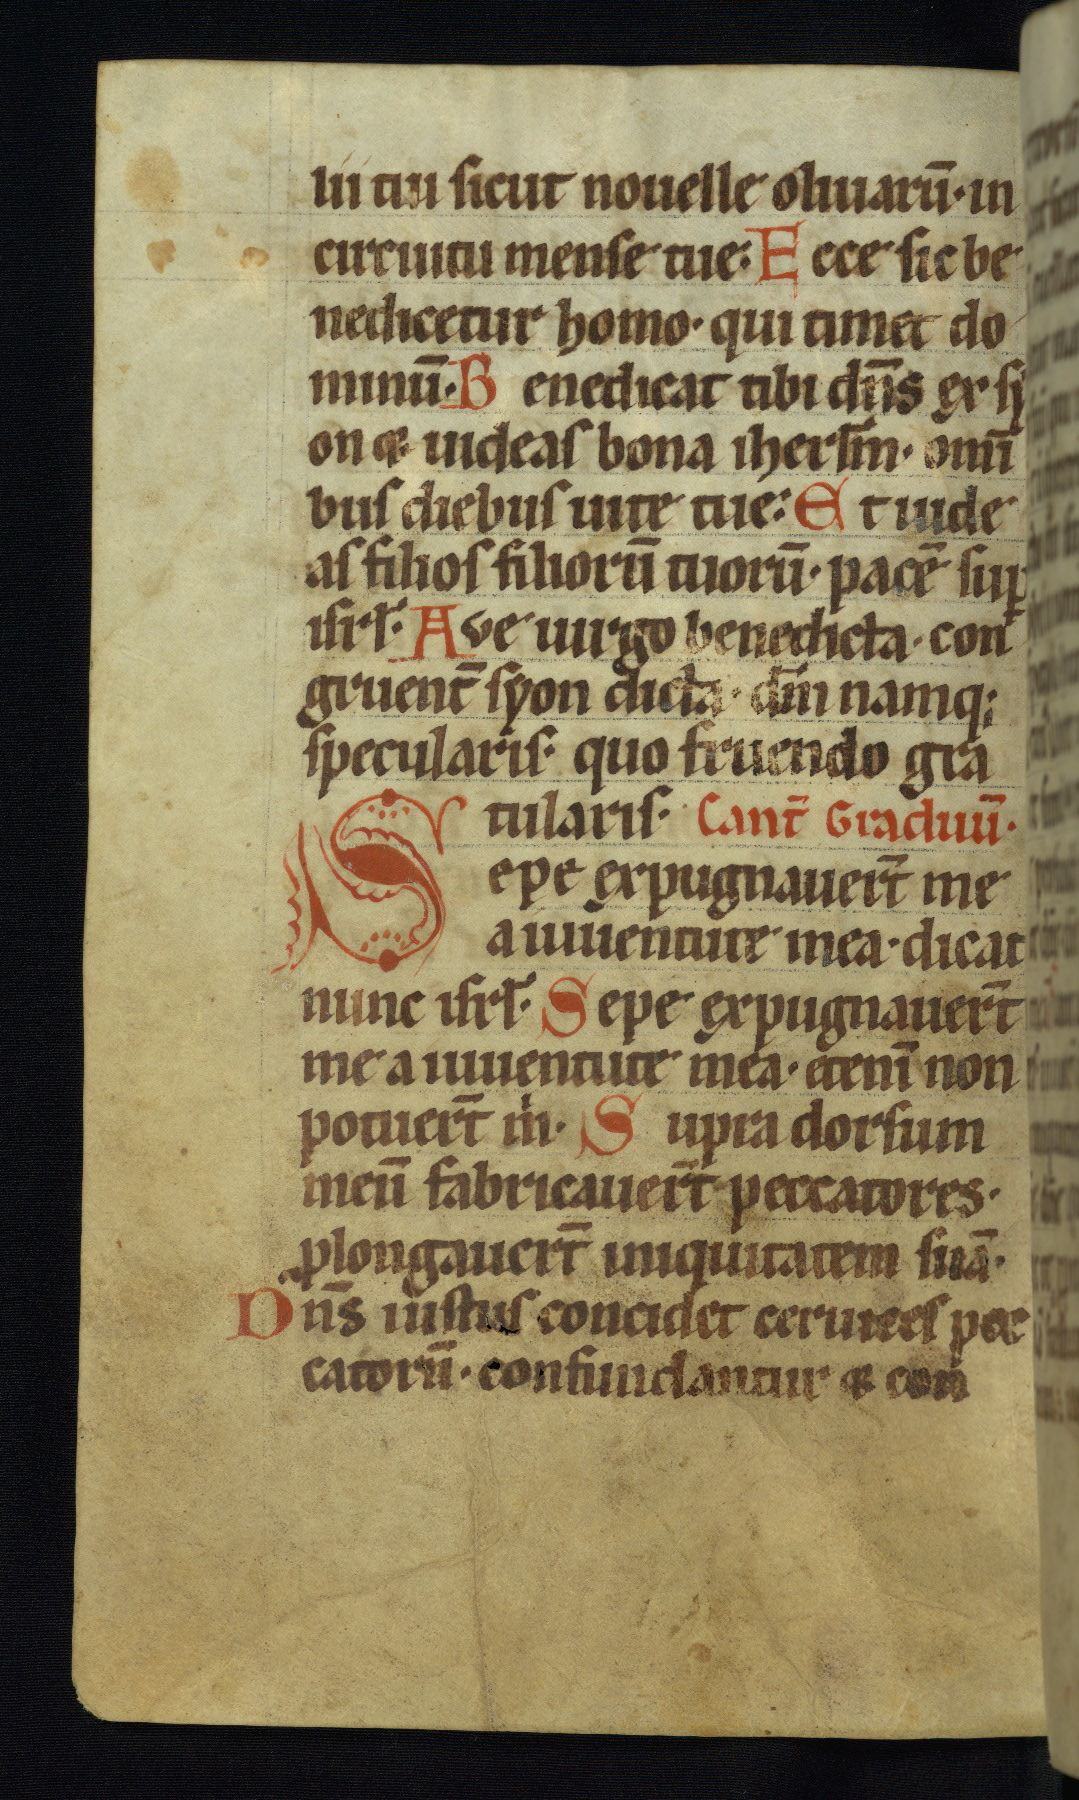 lii tui sicut nouelle oliuarū· in
circuitu mense tue: Ecce sic be
nedicetur homo· qui timet do
minū· Benedicat tibi dn̄s ex sy
on & uideas bona iherl̄m· omī
bus diebus uite tue: Et uide
as filios filiorū tuorū· pacē sup
isrl̄· Ave uirgo benedicta· con
gruent̄ syon dicta· dm̄ namq;
specularis· quo fruendo gra
tularis· Cant̄ Graduū·
Sepe expugnauer̄t me
a iuuentute mea· dicat
nunc isrl̄· Sepe expugnauer̄t
me a iuuentute mea· etenī non
potuer̄t m̍· Supra dorsum
meū fabricauer̄t peccatores·
plongauer̄t iniquitatem suā·
Dn̄s iustus concidet ceruices pec
catorū· confundantur & con